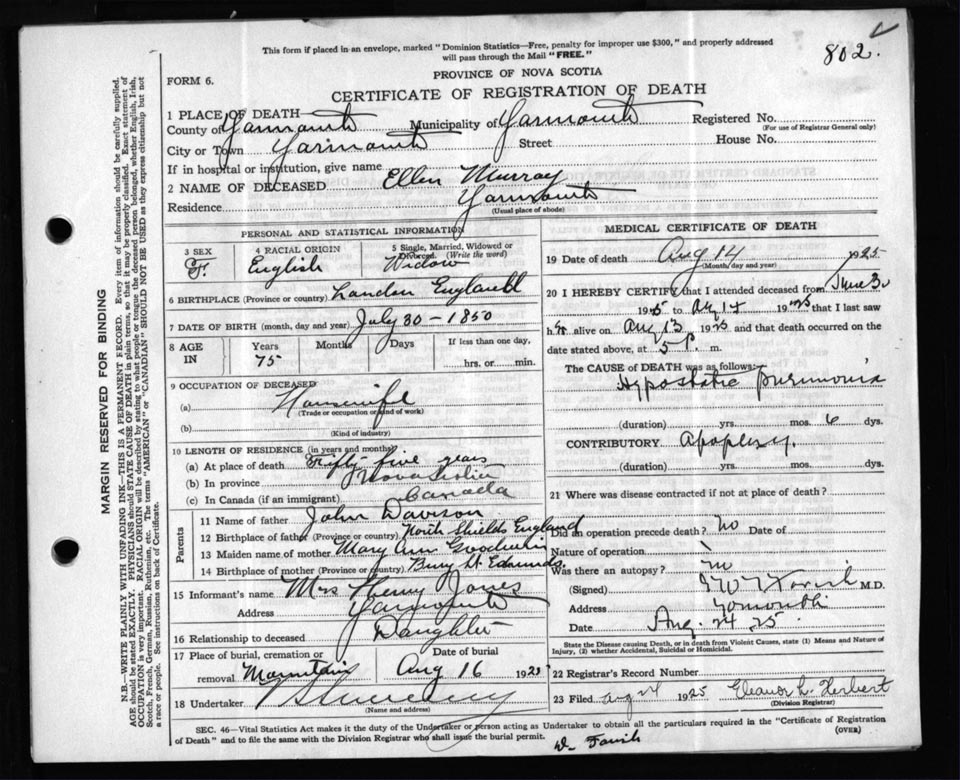 This form if placed in an envelope, marked "Dominion Statistics—Free, penalty for improper use $300," and properly addressed
will pass through the Mail "FREE."
802.
PROVINCE OF NOVA SCOTIA
FORM 6.
CERTIFICATE OF REGISTRATION OF DEATH
1 PLACE OF DEATH
County of Yarmouth Municipality of Yarmouth Registered No.
(For use of Registrar General only)
City or Town Yarmouth Street House No.
If in hospital or institution, give name
2 NAME OF DECEASED Ellen Murray
Residence Yarmouth
(Usual place of abode)
PERSONAL AND STATISTICAL INFORMATION
3 SEX 4 RACIAL ORIGIN 5 Single, Married, Widowed or Divorced. (Write the word)
F. English Widow
6 BIRTHPLACE (Province or country) London England
7 DATE OF BIRTH (month, day and year) July 30 - 1850
8 AGE IN Years Months Days If less than one day,
75 hrs. or min.
9 OCCUPATION OF DECEASED
(a) Housewife
(Trade or occupation or kind of work)
(b)
(Kind of industry)
10 LENGTH OF RESIDENCE (in years and months)
(a) At place of death Fifty five years
(b) In province Nova Scotia
(c) In Canada (if an immigrant) Canada
Parents
11 Name of father John Davison
12 Birthplace of father (Province or country) North Shields England
13 Maiden name of mother Mary Ann Goodwin
14 Birthplace of mother (Province or country) Bury St. Edmunds.
15 Informant's name Mrs Henry Jones
Address Yarmouth
16 Relationship to deceased Daughter
17 Place of burial, cremation or removal Date of burial
Mountain Aug 16 1925
18 Undertaker V Sweeny
(Name and address)
MEDICAL CERTIFICATE OF DEATH
19 Date of death Aug 14 1925
(Month, day and year)
20 I HEREBY CERTIFY that I attended deceased from June 30
1925 to Aug 14 1925 that I last saw
her alive on Aug 13 1925 and that death occurred on the
date stated above, at 5 P. m.
The CAUSE OF DEATH was as follows:
Hypostatic pneumonia
(duration) yrs. mos. 6 dys.
CONTRIBUTORY Apoplexy.
(duration) yrs. mos. dys.
21 Where was disease contracted if not at place of death?
Did an operation precede death? no Date of
Nature of operation
Was there an autopsy? no
(Signed) Farish M.D.
Address Yarmouth
Date Aug. 24 25.
State the Disease causing Death, or in death from Violent Causes, state (1) Means and Nature of
Injury, (2) whether Accidental, Suicidal or Homicidal.
22 Registrar's Record Number
23 Filed Aug 1925 Eleanor L. Herbert
(Division Registrar)
SEC. 46—Vital Statistics Act makes it the duty of the Undertaker or person acting as Undertaker to obtain all the particulars required in the "Certificate of Registration
of Death" and to file the same with the Division Registrar who shall issue the burial permit.
(OVER)
Dr Farish
MARGIN RESERVED FOR BINDING
N.B.—WRITE PLAINLY WITH UNFADING INK—THIS IS A PERMANENT RECORD. Every item of information should be carefully supplied.
AGE should be stated EXACTLY. PHYSICIANS should STATE CAUSE OF DEATH in plain terms, so that it may be properly classified. Exact statement of
OCCUPATION is very important. RACIAL ORIGIN will be described by stating to what people or tongue the deceased person belonged, whether English, Irish,
Scotch, French, German, Russian, Ruthenian, etc. The terms "AMERICAN" or "CANADIAN" SHOULD NOT BE USED as they express citizenship but not
a race or people. See instructions on back of Certificate.